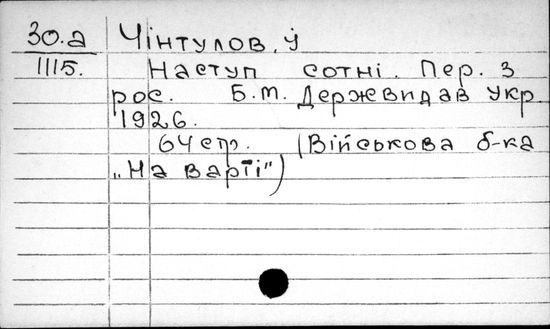 30.а Чінтулов, У
1115. Наступ сотні. Пер. з
рос. Б.М. Держвидав Укр.
1926.
64 стр. (Військова б-ка
„На варті")